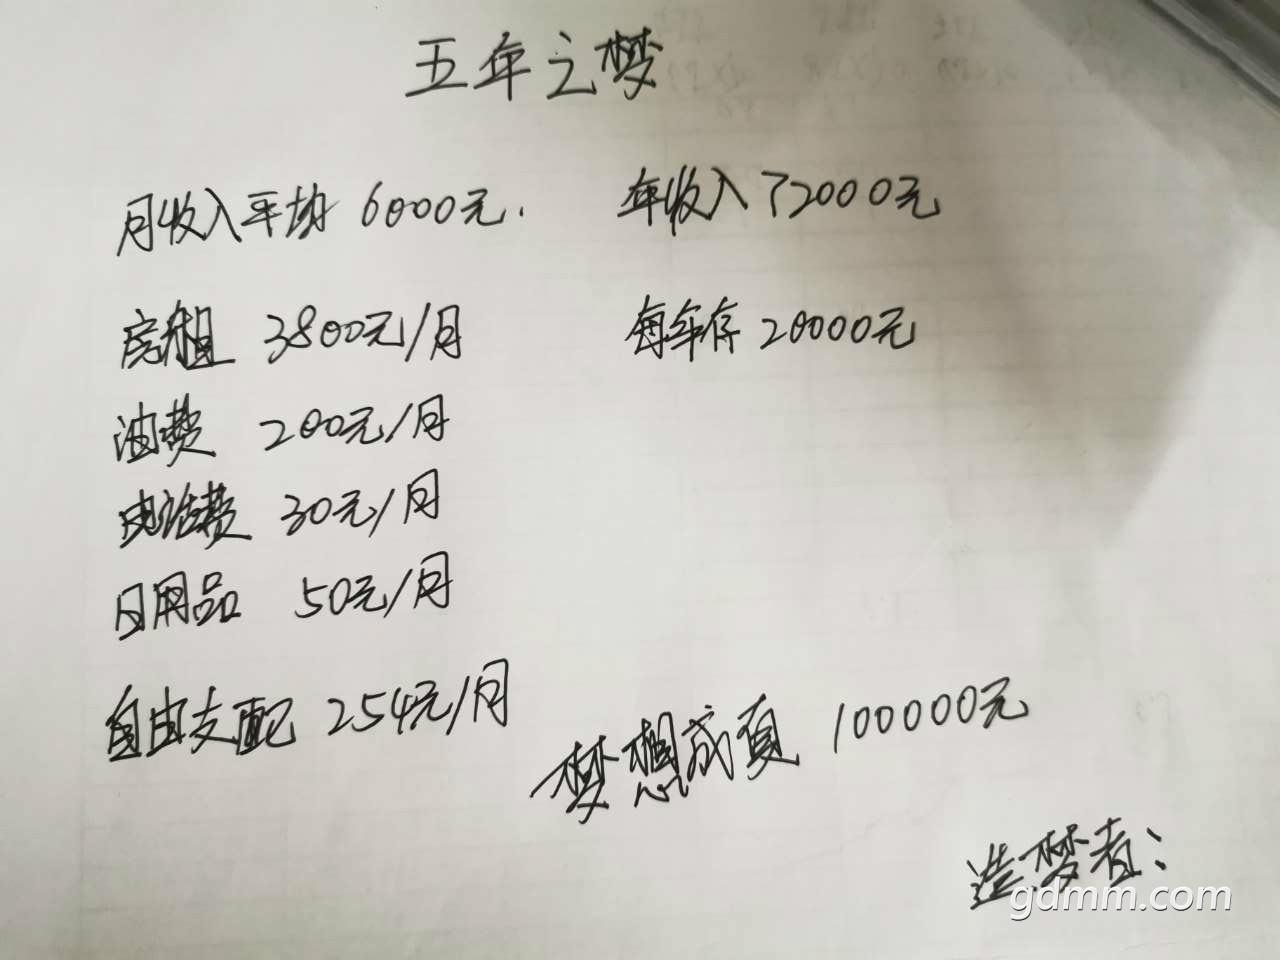 五年之梦
月收入平均 6000元. 年收入 72000元
房租 3800元/月 每年存 20000元
油费 200元/月
电话费 30元/月
日用品 50元/月
自由支配 254元/月
梦想成真 100000元
造梦者:
gdmm.com